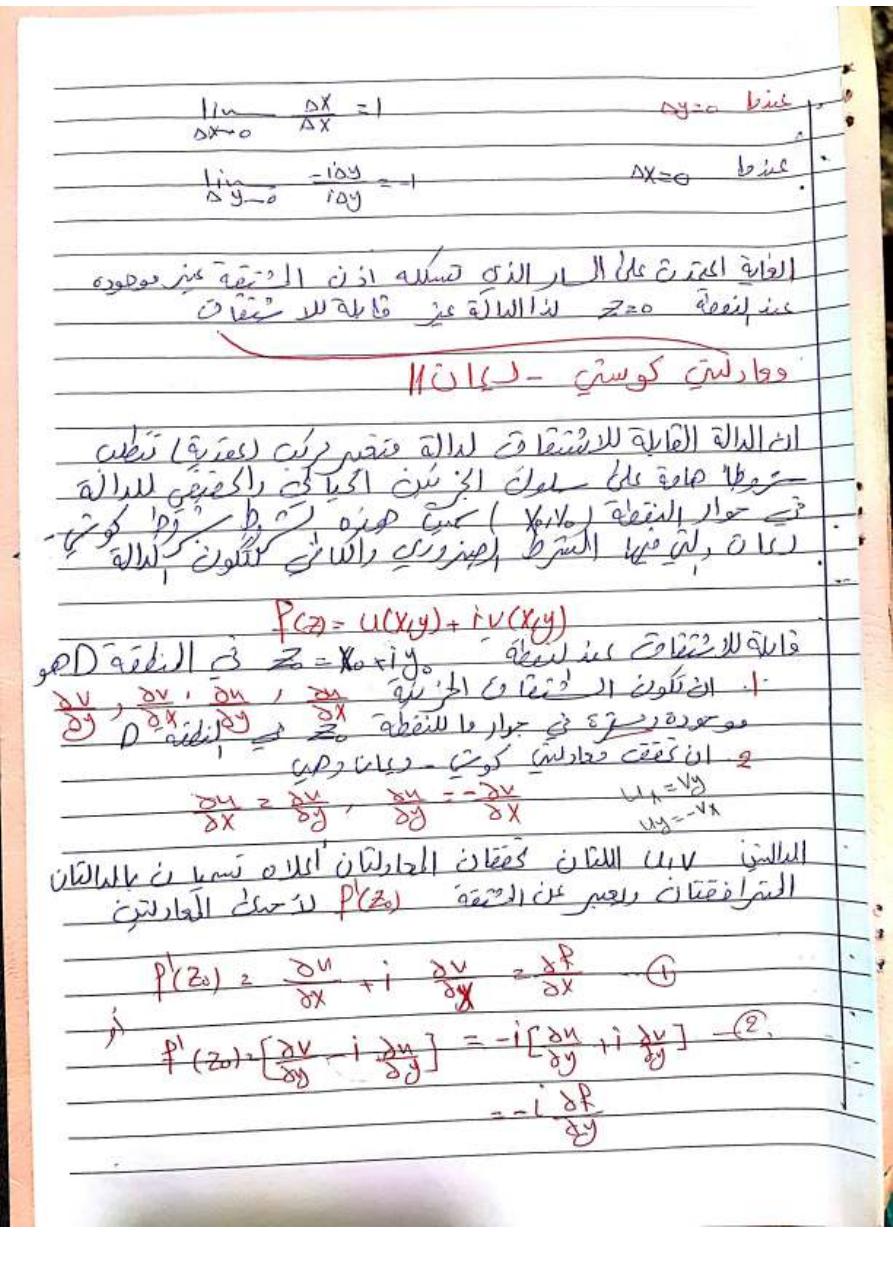 عندما Δy=0 lim Δx→0 Δx/Δx = 1
عندما Δx=0 lim Δy→0 -iΔy/iΔy = -1
الغاية اعتمدت على المسار الذي تسلكه اذن المشتقة غير موجوده
عند النقطة z=0 لذا الدالة غير قابلة للاشتقاق
معادلتي كوشي - ريمان //
ان الدالة القابلة للاشتقاق لدالة متغير مركب (عقدية) تتطلب
شروطا هامة على سلوك الجزئين الخيالي والحقيقي للدالة
في جوار النقطة (x₀,y₀) سميت هذه بشروط كوشي-
ريمان والتي فيها الشرط الضروري والكافي لتكون الدالة
f(z) = u(x,y) + iv(x,y)
قابلة للاشتقاق عند النقطة z₀ = x₀ + iy₀ في المنطقة D هو
1. ان تكون المشتقات الجزئية ∂u/∂x , ∂u/∂y , ∂v/∂x , ∂v/∂y
موجودة ومستمرة في جوار ما للنقطة z₀ في المنطقة D
2. ان تحقق معادلتي كوشي - ريمان وهي
∂u/∂x = ∂v/∂y , ∂u/∂y = -∂v/∂x ux = vy
uy = -vx
الدالتين u,v اللتان تحققان المعادلتان أعلاه تسميان بالدالتان
المترافقتان ويعبر عن المشتقة f'(z₀) لأحدى المعادلتين
f'(z₀) = ∂u/∂x + i ∂v/∂x = ∂f/∂x — ①
أو
f'(z₀) = [∂v/∂y - i ∂u/∂y] = -i[∂u/∂y + i ∂v/∂y] — ②
= -i ∂f/∂y